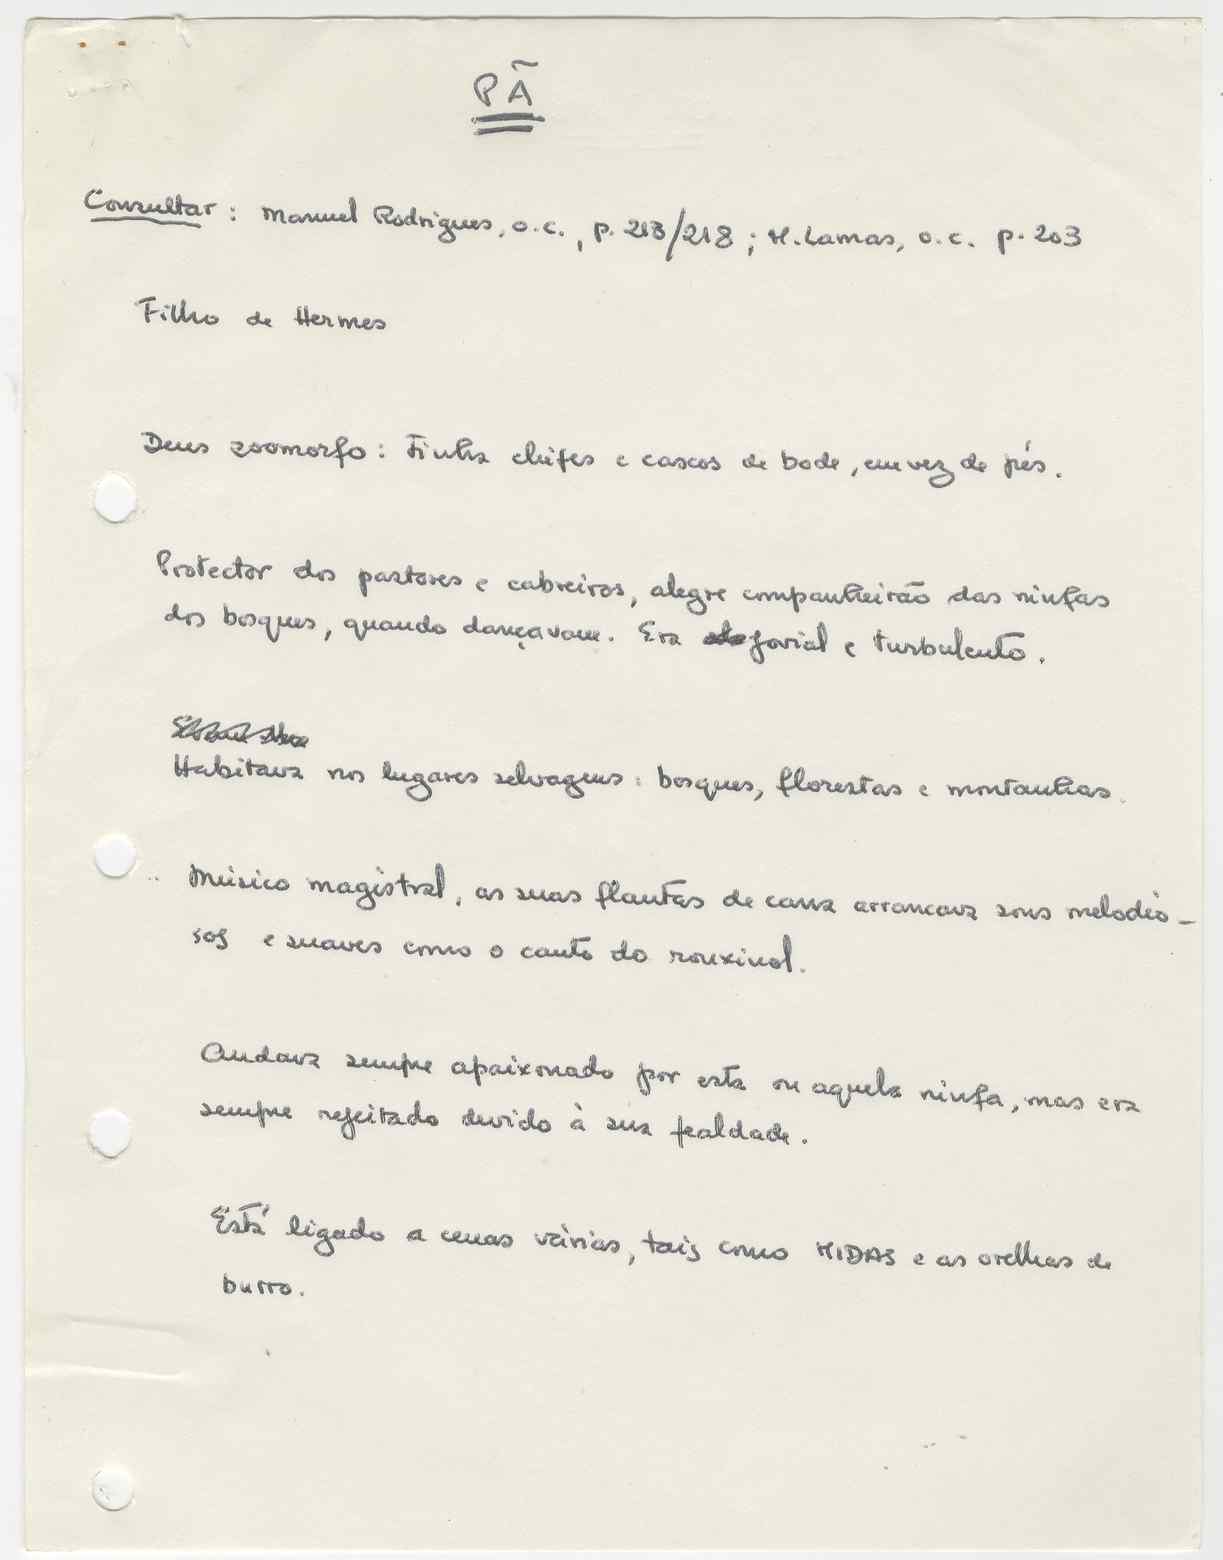 PÃ
Consultar: Manuel Rodrigues, o.c., p. 213/218; M. Lamas, o.c. p. 203
Filho de Hermes
Deus zoomorfo: Tinha chifes e cascos de bode, em vez de pés.
Protector dos pastores e cabreiros, alegre companheirão das ninfas
dos bosques, quando dançavam. Era jovial e turbulento.
Habitava nos lugares selvagens: bosques, florestas e montanhas.
Músico magistral, as suas flautas de cana arrancava sons melodio-
sos e suaves como o canto do rouxinol.
Andava sempre apaixonado por esta ou aquela ninfa, mas era
sempre rejeitado devido à sua fealdade.
Está ligado a cenas várias, tais como MIDAS e as orelhas de
burro.